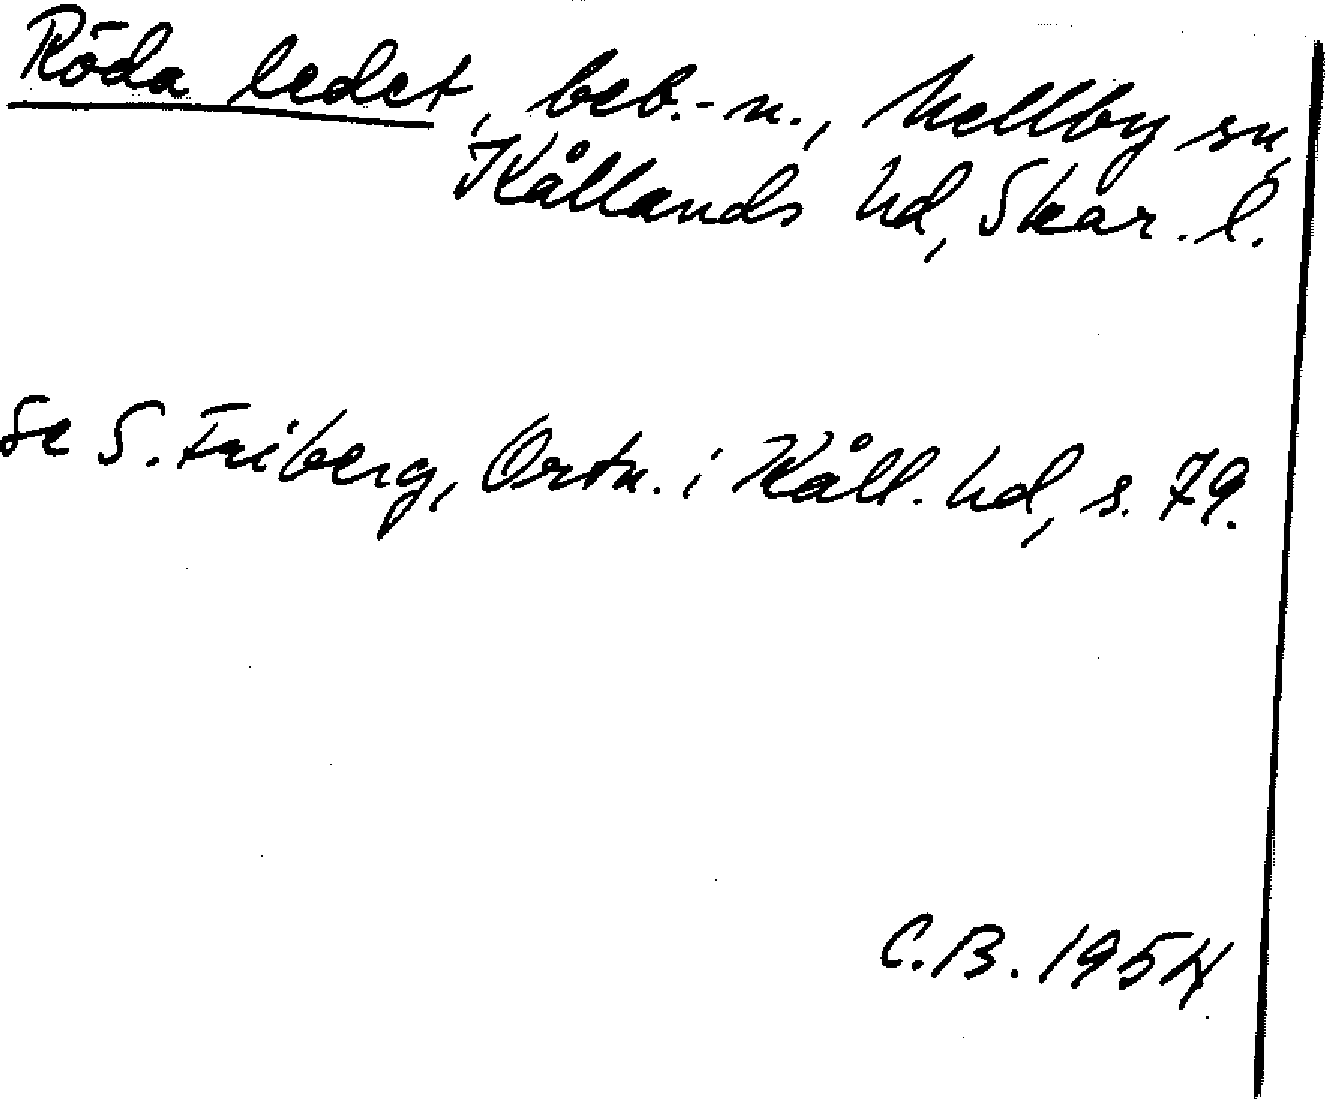 Röda ledet, beb.-n., Mellby sn,
Kållands hd, Skar. l.
se S. Friberg, Ortn. i Kåll. hd, s. 79.
C.B. 1954